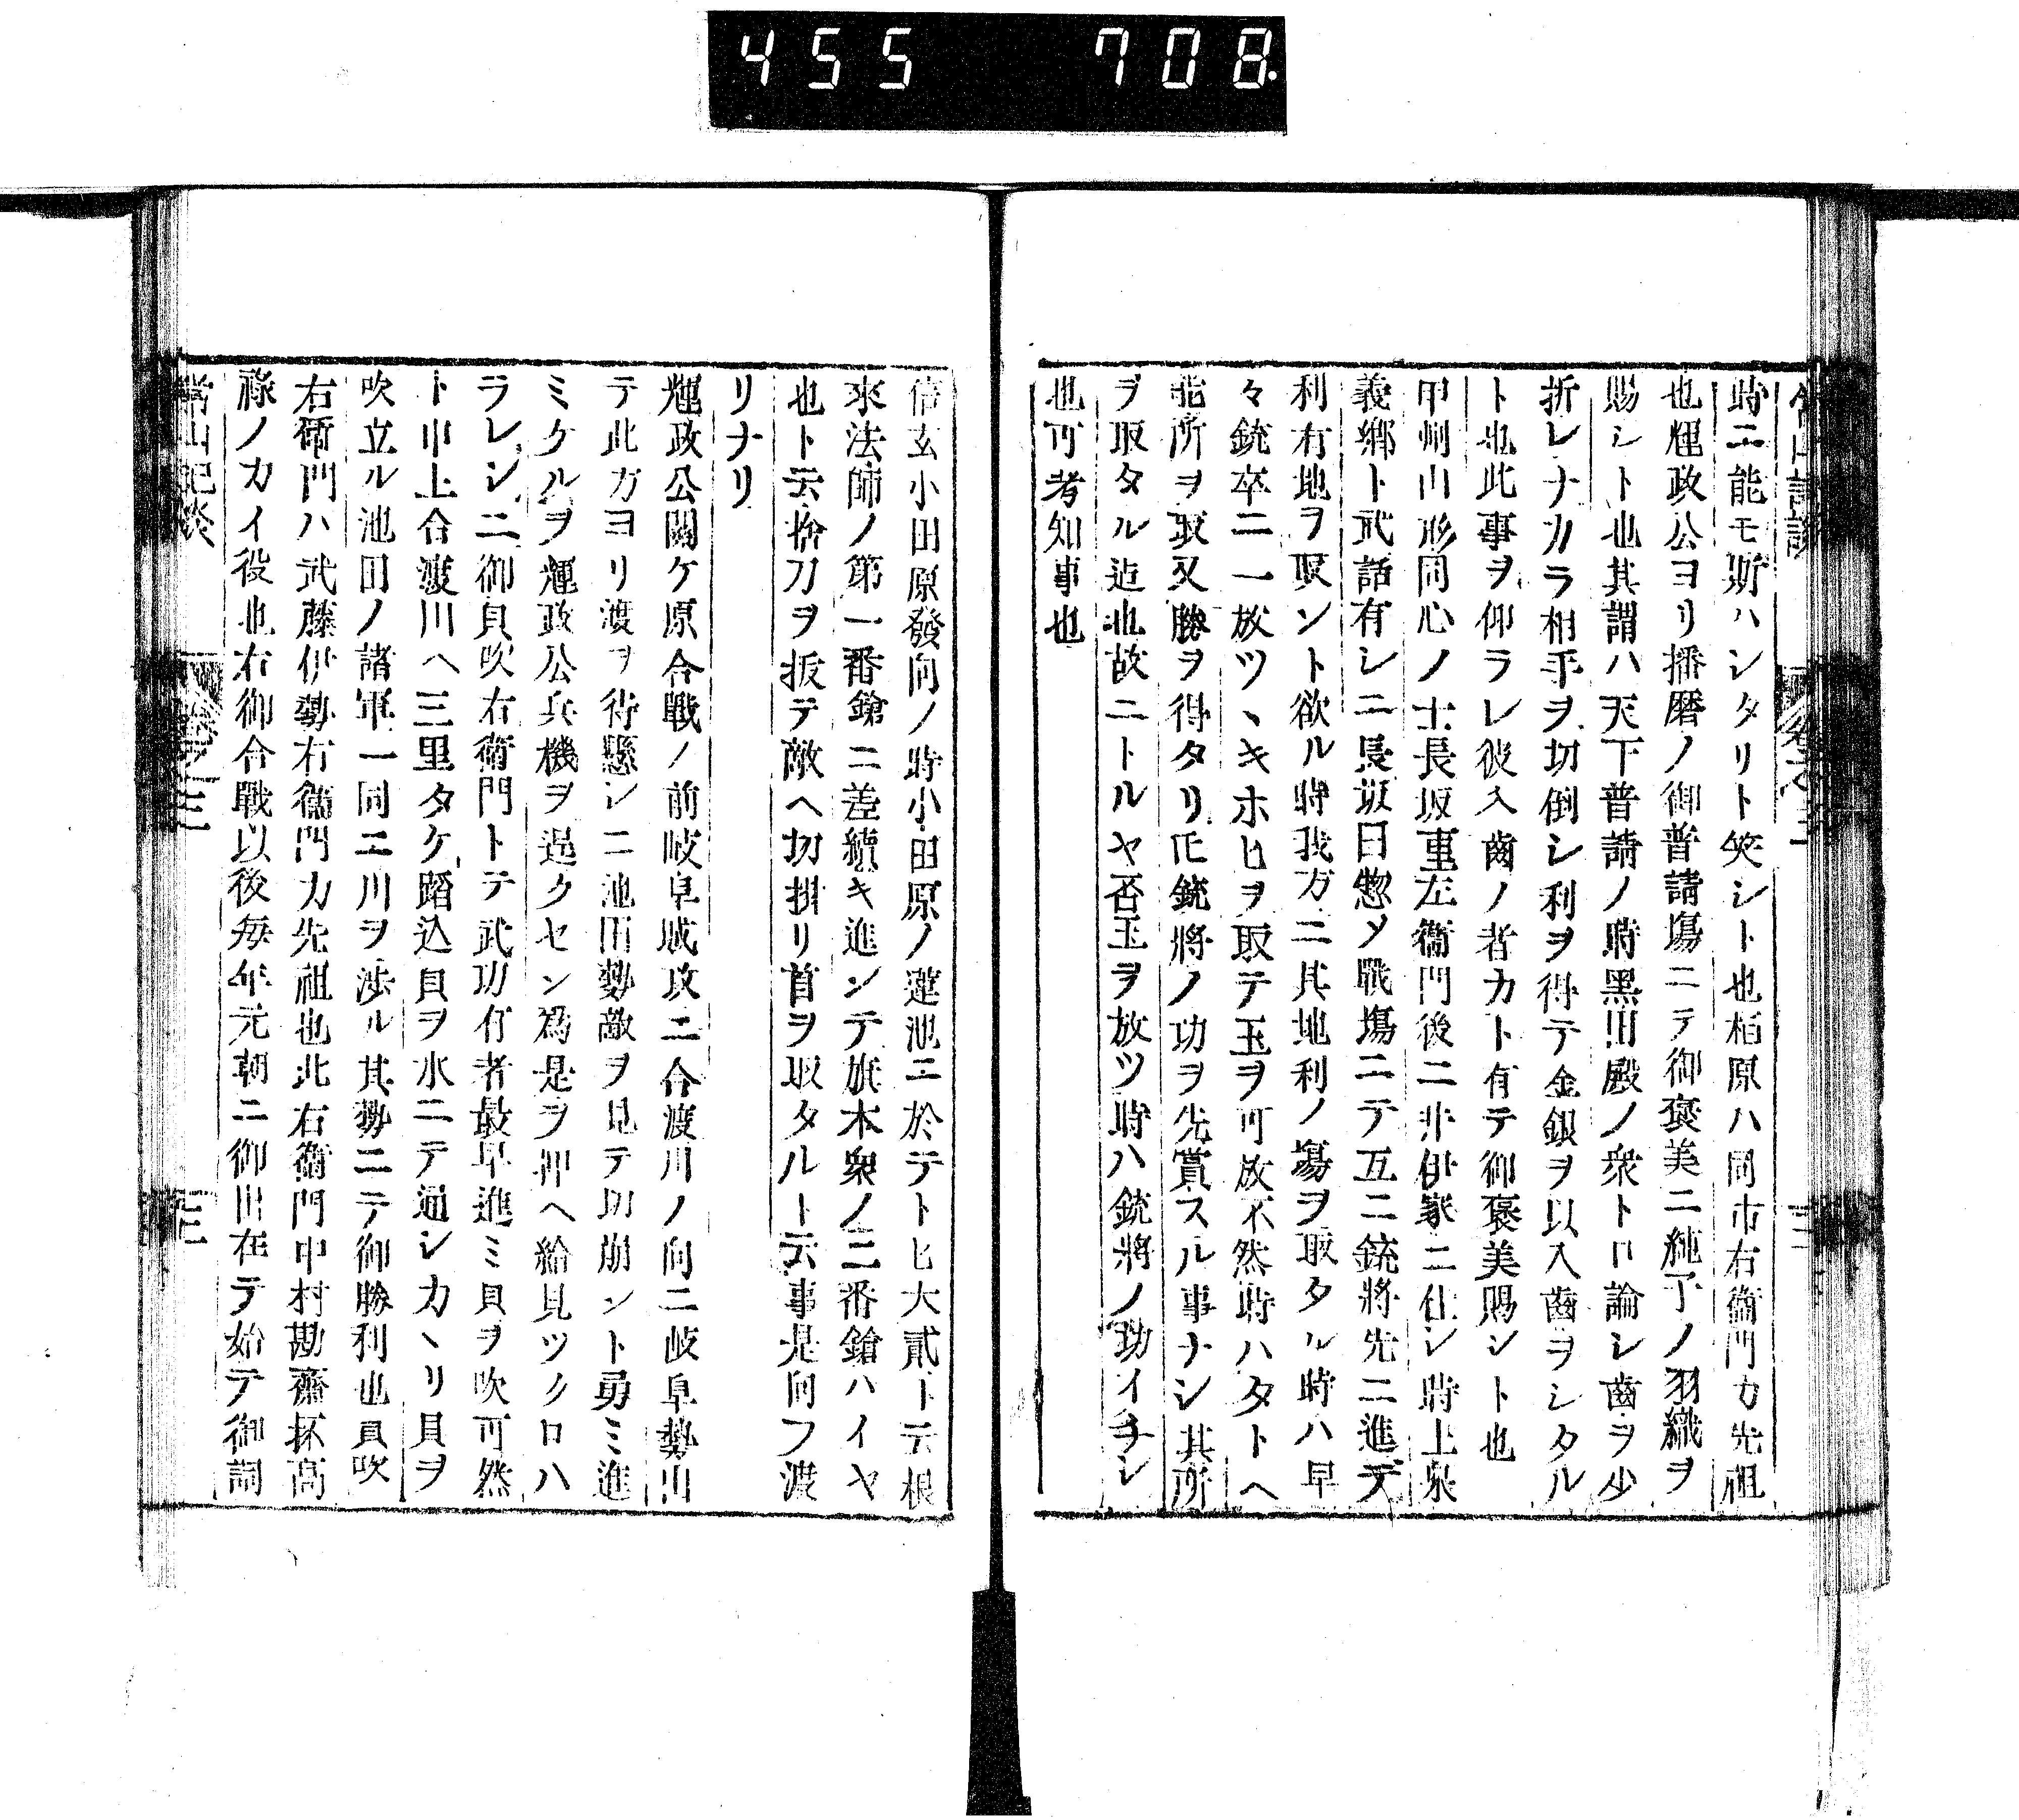 455 708.
時ニ能モ斯ハシタリト笑シト也栢原ハ同市右衛門カ先祖
也輝政公ヨリ播磨ノ御普請塲ニテ御褒美ニ純子ノ羽織ヲ
賜シト也其謂ハ天下普請ノ時黒田殿ノ衆ト口論シ齒ヲ少
折レナカラ相手ヲ切倒シ利ヲ得テ金銀ヲ以入齒ヲシタル
ト也此事ヲ仰ラレ彼入齒ノ者カト有テ御褒美賜シト也
甲州山形同心ノ士長坂重左衞門後ニ井伊家ニ仕シ時上泉
義郷ト武話有シニ長坂曰惣メ戰塲ニテ互ニ銃將先ニ進テ
利有地ヲ取ント欲ル時我方ニ其地利ノ塲ヲ取タル時ハ早
々銃卒ニ一放ツヽキホヒヲ取テ玉ヲ可放不然時ハタトヘ
能所ヲ取又勝ヲ得タリ𪜈銃將ノ功ヲ先賞スル事ナシ其所
ヲ取タル迄也故ニトルヤ否玉ヲ放ツ時ハ銃將ノ功イチシ
也可考知事也
信玄小田原發向ノ時小田原ノ蓮池ニ於テトヒ大貳ト云根
來法師ノ第一番鎗ニ差續キ進ンテ旗本衆ノ二番鎗ハイヤ
也ト云捨刀ヲ拔テ敵ヘ切掛リ首ヲ取タルト云事是向フ渡
リナリ
輝政公關ケ原合戰ノ前岐阜城攻ニ合渡川ノ向ニ岐阜勢出
テ此方ヨリ渡ヲ待懸シニ池田勢敵ヲ見テ切崩ント勇ミ進
ミケルヲ輝政公兵機ヲ逞クセン爲是ヲ押ヘ給見ツクロハ
ラレシニ御貝吹右衛門トテ武功有者最早進ミ貝ヲ吹可然
ト申上合渡川ヘ三里タケ踏込貝ヲ水ニテ通シカヽリ貝ヲ
吹立ル池田ノ諸軍一同ニ川ヲ渉ル其勢ニテ御勝利也貝吹
右衛門ハ武藤伊勢右衞門カ先祖也此右衛門中村勘齋抔高
祿ノカイ役也右御合戰以後毎年元朝ニ御出在テ始テ御詞
常山紀談 卷之三 三